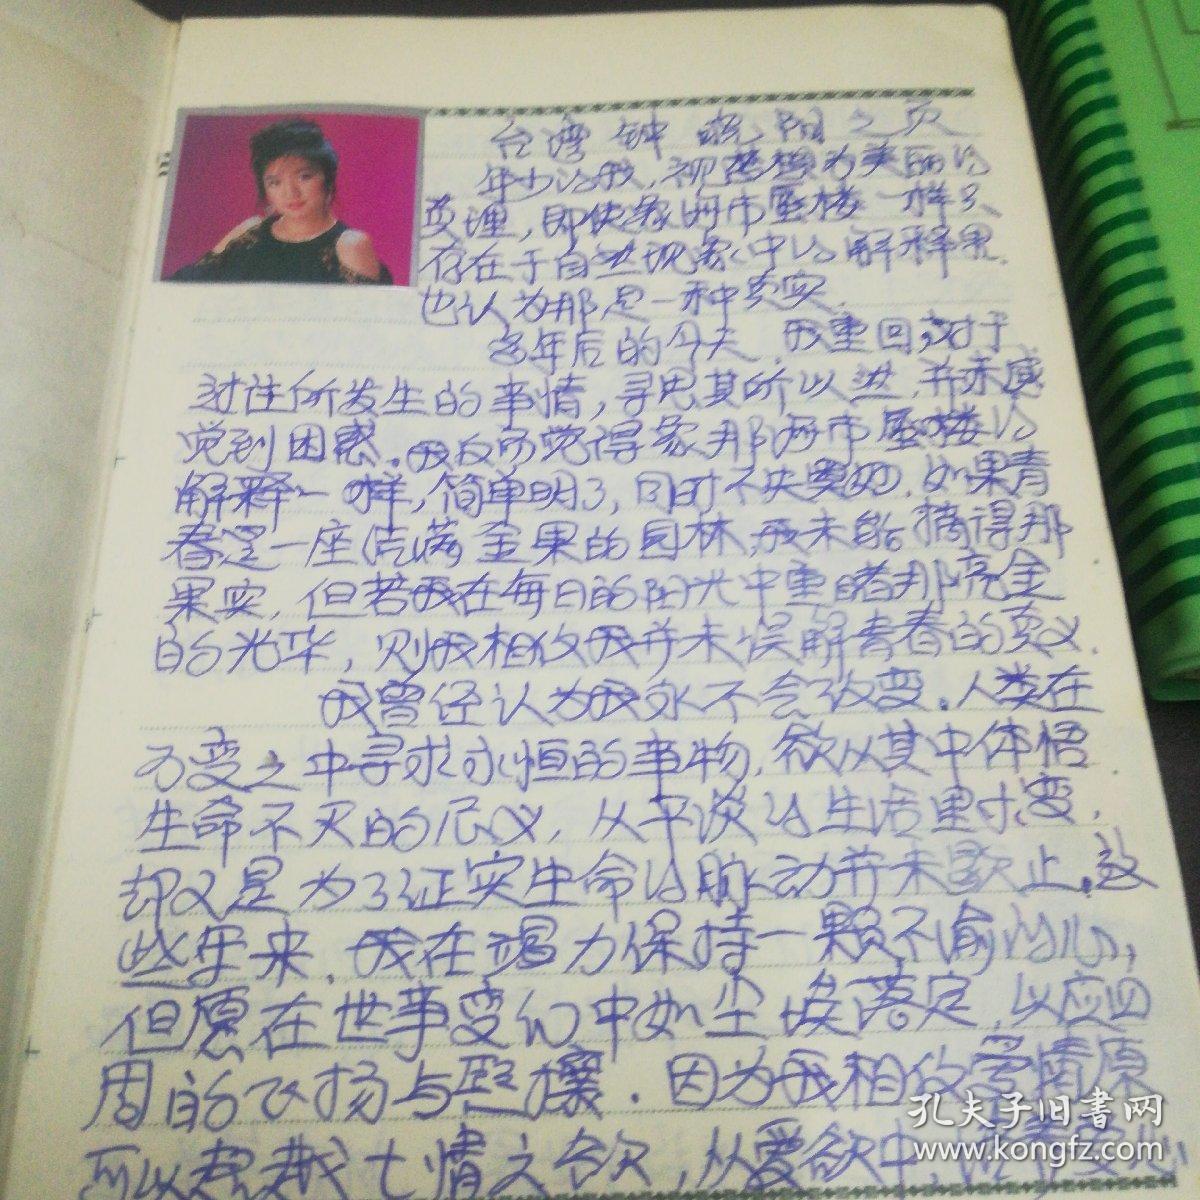 台湾钟晓阳之页
年少的我，视梦想为美丽的
真理，即使象海市蜃楼一样只
存在于自然现象中的解释里，
也认为那是一种真实。
多年后的今天，我重回对于
过往所发生的事情，寻思其所以然，并未感
觉到困惑。我反而觉得象那海市蜃楼的
解释一样，简单明了，同时不失奥妙。如果青
春是一座结满金果的园林，我未能摘得那
果实，但若我在每日的阳光中重睹那亮金
的光华，则我相仪我并未误解青春的真义。
我曾经认为我永不会改变。人类在
万变之中寻求永恒的事物，欲从其中体悟
生命不灭的尼义，从平淡的生活里求变，
却又是为了证实生命的脉动并未歇止。这
些年来，我在竭力保持一颗不渝的心，
但愿在世事变幻中如尘埃落定，以应四
周的飞扬与熙攘。因为我相仪爱情原
可以超越七情之欲，从爱欲中
孔夫子旧书网
www.kongfz.com